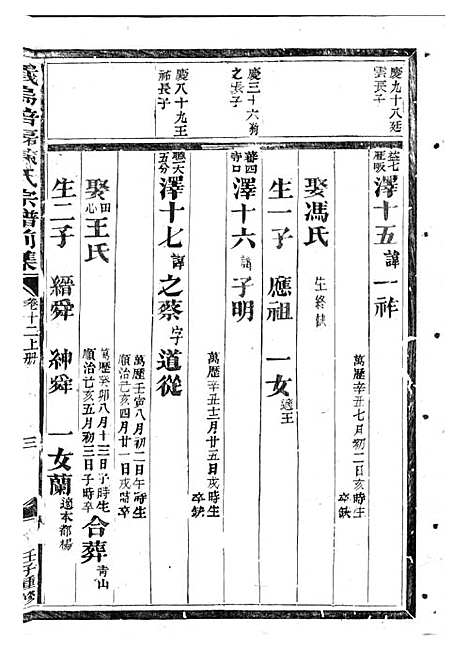 慶九十八廷
雲長子
慶三十六
之長子
慶八十九王
祐長子
澤十五 諱一祚
萬歷辛丑七月初二日亥時生
卒缺
娶馮氏 生終缺
生一子 應祖 一女 適王
澤十六 諱子明
萬歷辛丑十二月廿五日亥時生
卒缺
五分
澤十七 諱之蔡 字道從
萬歷壬寅八月初二日午時生
順治己亥四月廿一日戌時卒
娶田心王氏
萬歷癸卯八月十三日子時生
順治己亥五月初三日子時卒
合葬青山
生二子 縉舜 紳舜 一女蘭 適本都楊
氏宗譜前集
卷十二上冊
三
壬子重修